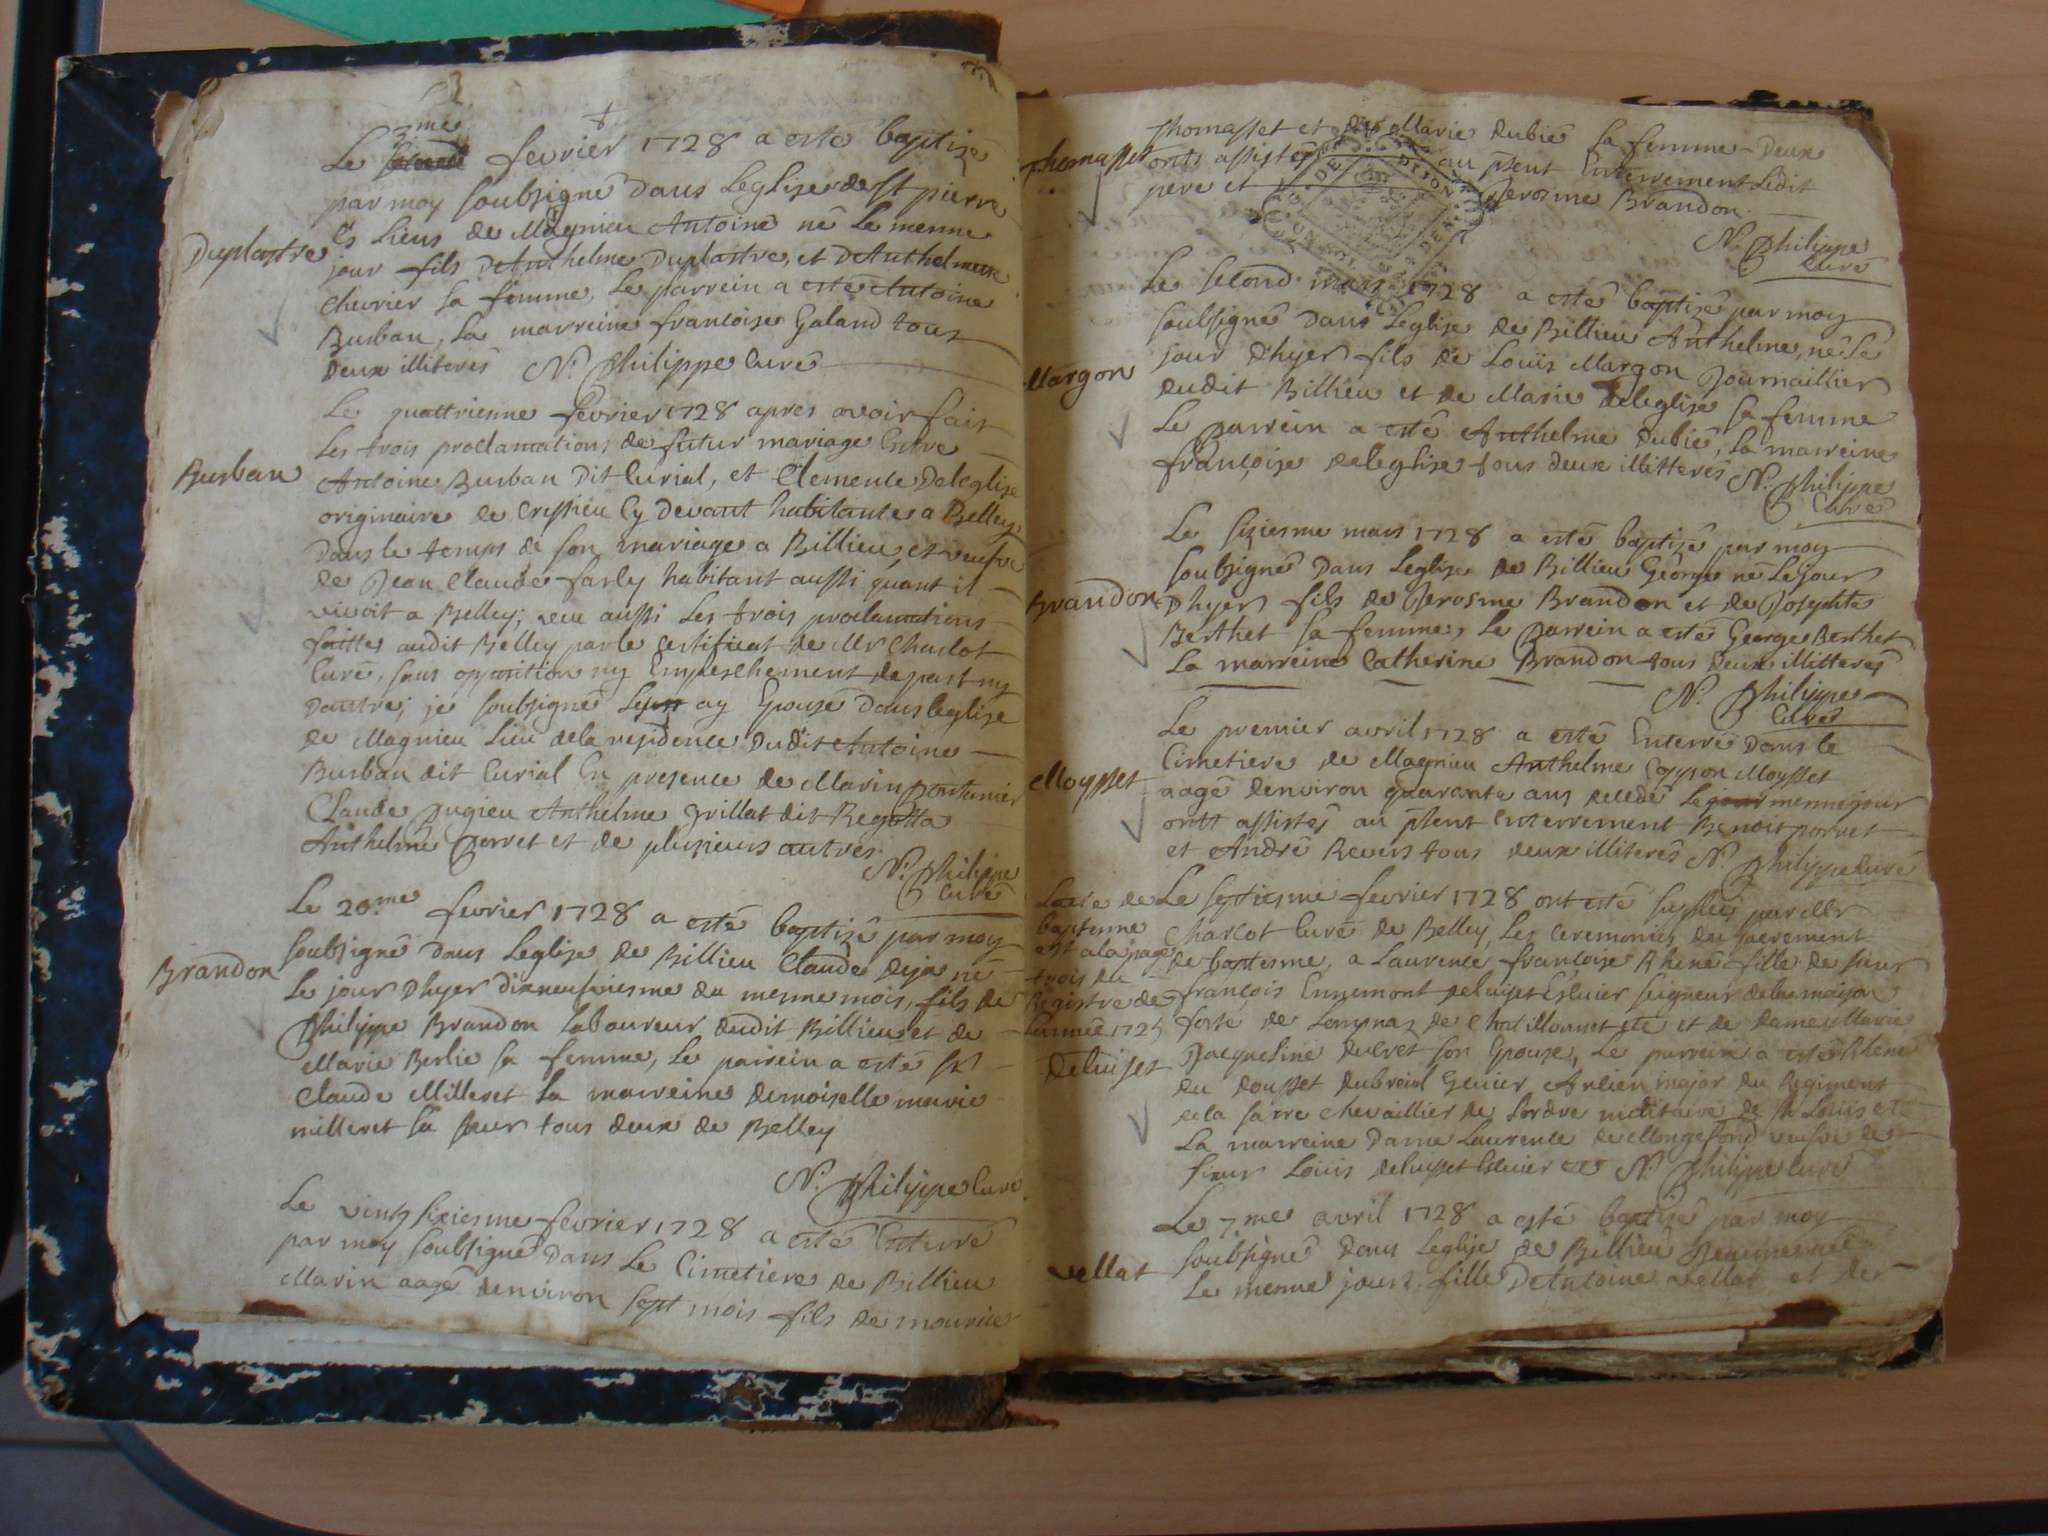 3me
Le fevrier 1728 a esté baptizé
par moy soubsigné dans Leglise de St pierre
Es Liens de Magnieu Antoine né Le mesme
Duplastre
jour fils DeAnthelme Duplastre, et DeAnthelmene
Chevrier sa femme, Le parrein a esté Antoine
Burban, La marreine francoise Galand tous
Deux illiterés N. Philippe Curé
Le quattriesme fevrier 1728 apres avoir fait
Les trois proclamations de futur mariage Entre
Burban
Antoine Burban Dit Curial, et Clemence Deleglise
originaire de Cressieu Cy Devant habitante a Belley
Dans le temps de son mariage a Billieu, et veufve
de Jean Claude farly habitant aussi quant il
vivoit a Belley; veu aussi Les trois proclamations
faittes audit Belley par le Certificat de Mr Charlot
Curé, sans opposition ny Empeschement de part ny
Dautre; je soubsigné Les ay Epousé Dans leglise
de Magnieu Lieu de la residence Dudit Antoine
Burban dit Curial En presence de Marin Pontanier
Claude Pugieu Anthelme Grillat dit Regotta
Anthelme Porret et de plusieurs autres
N. Philippe
Curé
Le 20.me fevrier 1728 a esté baptizé par moy
soubsigné Dans Leglise de Billieu Claude Deja né
Brandon
Le jour Dhyer Dixneufviesme du mesme mois, fils de
Philippe Brandon Laboureur dudit Billieu et de
Marie Berlie sa femme, Le parrein a esté Sr
Claude Milleret La marreine demoiselle marie
milleret sa soeur tous deux de Belley
N. Philippe Curé
Le vingt sixiesme fevrier 1728 a esté Enterré
par moy soubsigné Dans Le Cimetiere de Billieu
Marin aagé denviron sept mois fils de maurice
Thomasset et de Marie Dubié sa femme Deux
Thomasset
onts assistés au pñt Enterrement Ledit
pere et Jerosme Brandon.
N. Philippe
Curé
Le second mars 1728 a esté baptizé par moy
soubsigné Dans Leglise de Billieu Anthelme, né Le
Margon
jour Dhyer fils de Louis Margon Journaillier
dudit Billieu et de Marie Deleglise sa femme
Le parrein a esté Anthelme Dubié, La marreine
françoise Deleglise tous deux illitterés N. Philippe
Curé
Le sixiesme mars 1728 a esté baptizé par moy
soubsigné Dans Leglise de Billieu George né Le jour
Brandon
Dhyer fils de Jerosme Brandon et de Josephte
Berthet sa femme, Le parrein a esté George Berthet
La marreine Catherine Brandon tous deux illitterés
N. Philippe
Curé
Le premier avril 1728 a esté Enterré Dans le
Cimetiere de Magnieu Anthelme Moysset
Moysset
aagé denviron quarante ans decedé Le mesme jour
onts assistés au pñt enterrement Benoit porret
et André Revers tous deux illiterés N. Philippe Curé
Lacte de
baptesme
est a la page
trois du
Registre de
Lannée 1725
Deluiset
Le septiesme fevrier 1728 ont esté supplées par Mr
Charcot Curé de Belley, Les Ceremonies du sacrement
de baptesme, a Laurence françoise Rhené fille de sieur
françois Ennemont deluiset Escuier seigneur de la maison
forte de de Chatillonnet etc et de dame Marie
Jacqueline son Epouse, Le parrein a esté Rhené
du dousset dubreuil Ecuier, Ancien major du Regiment
de la sarre chevaillier de Lordre militaire de St Louis etc
La marreine Dame Laurence de Mongefond veufve de
sieur Louis deluisset Escuier etc N. Philippe Curé
Le 7.me avril 1728 a esté baptisé par moy
vellat
soubsigné Dans Leglise de Billieu
Le mesme jour, fille DeAntoine vellat et de